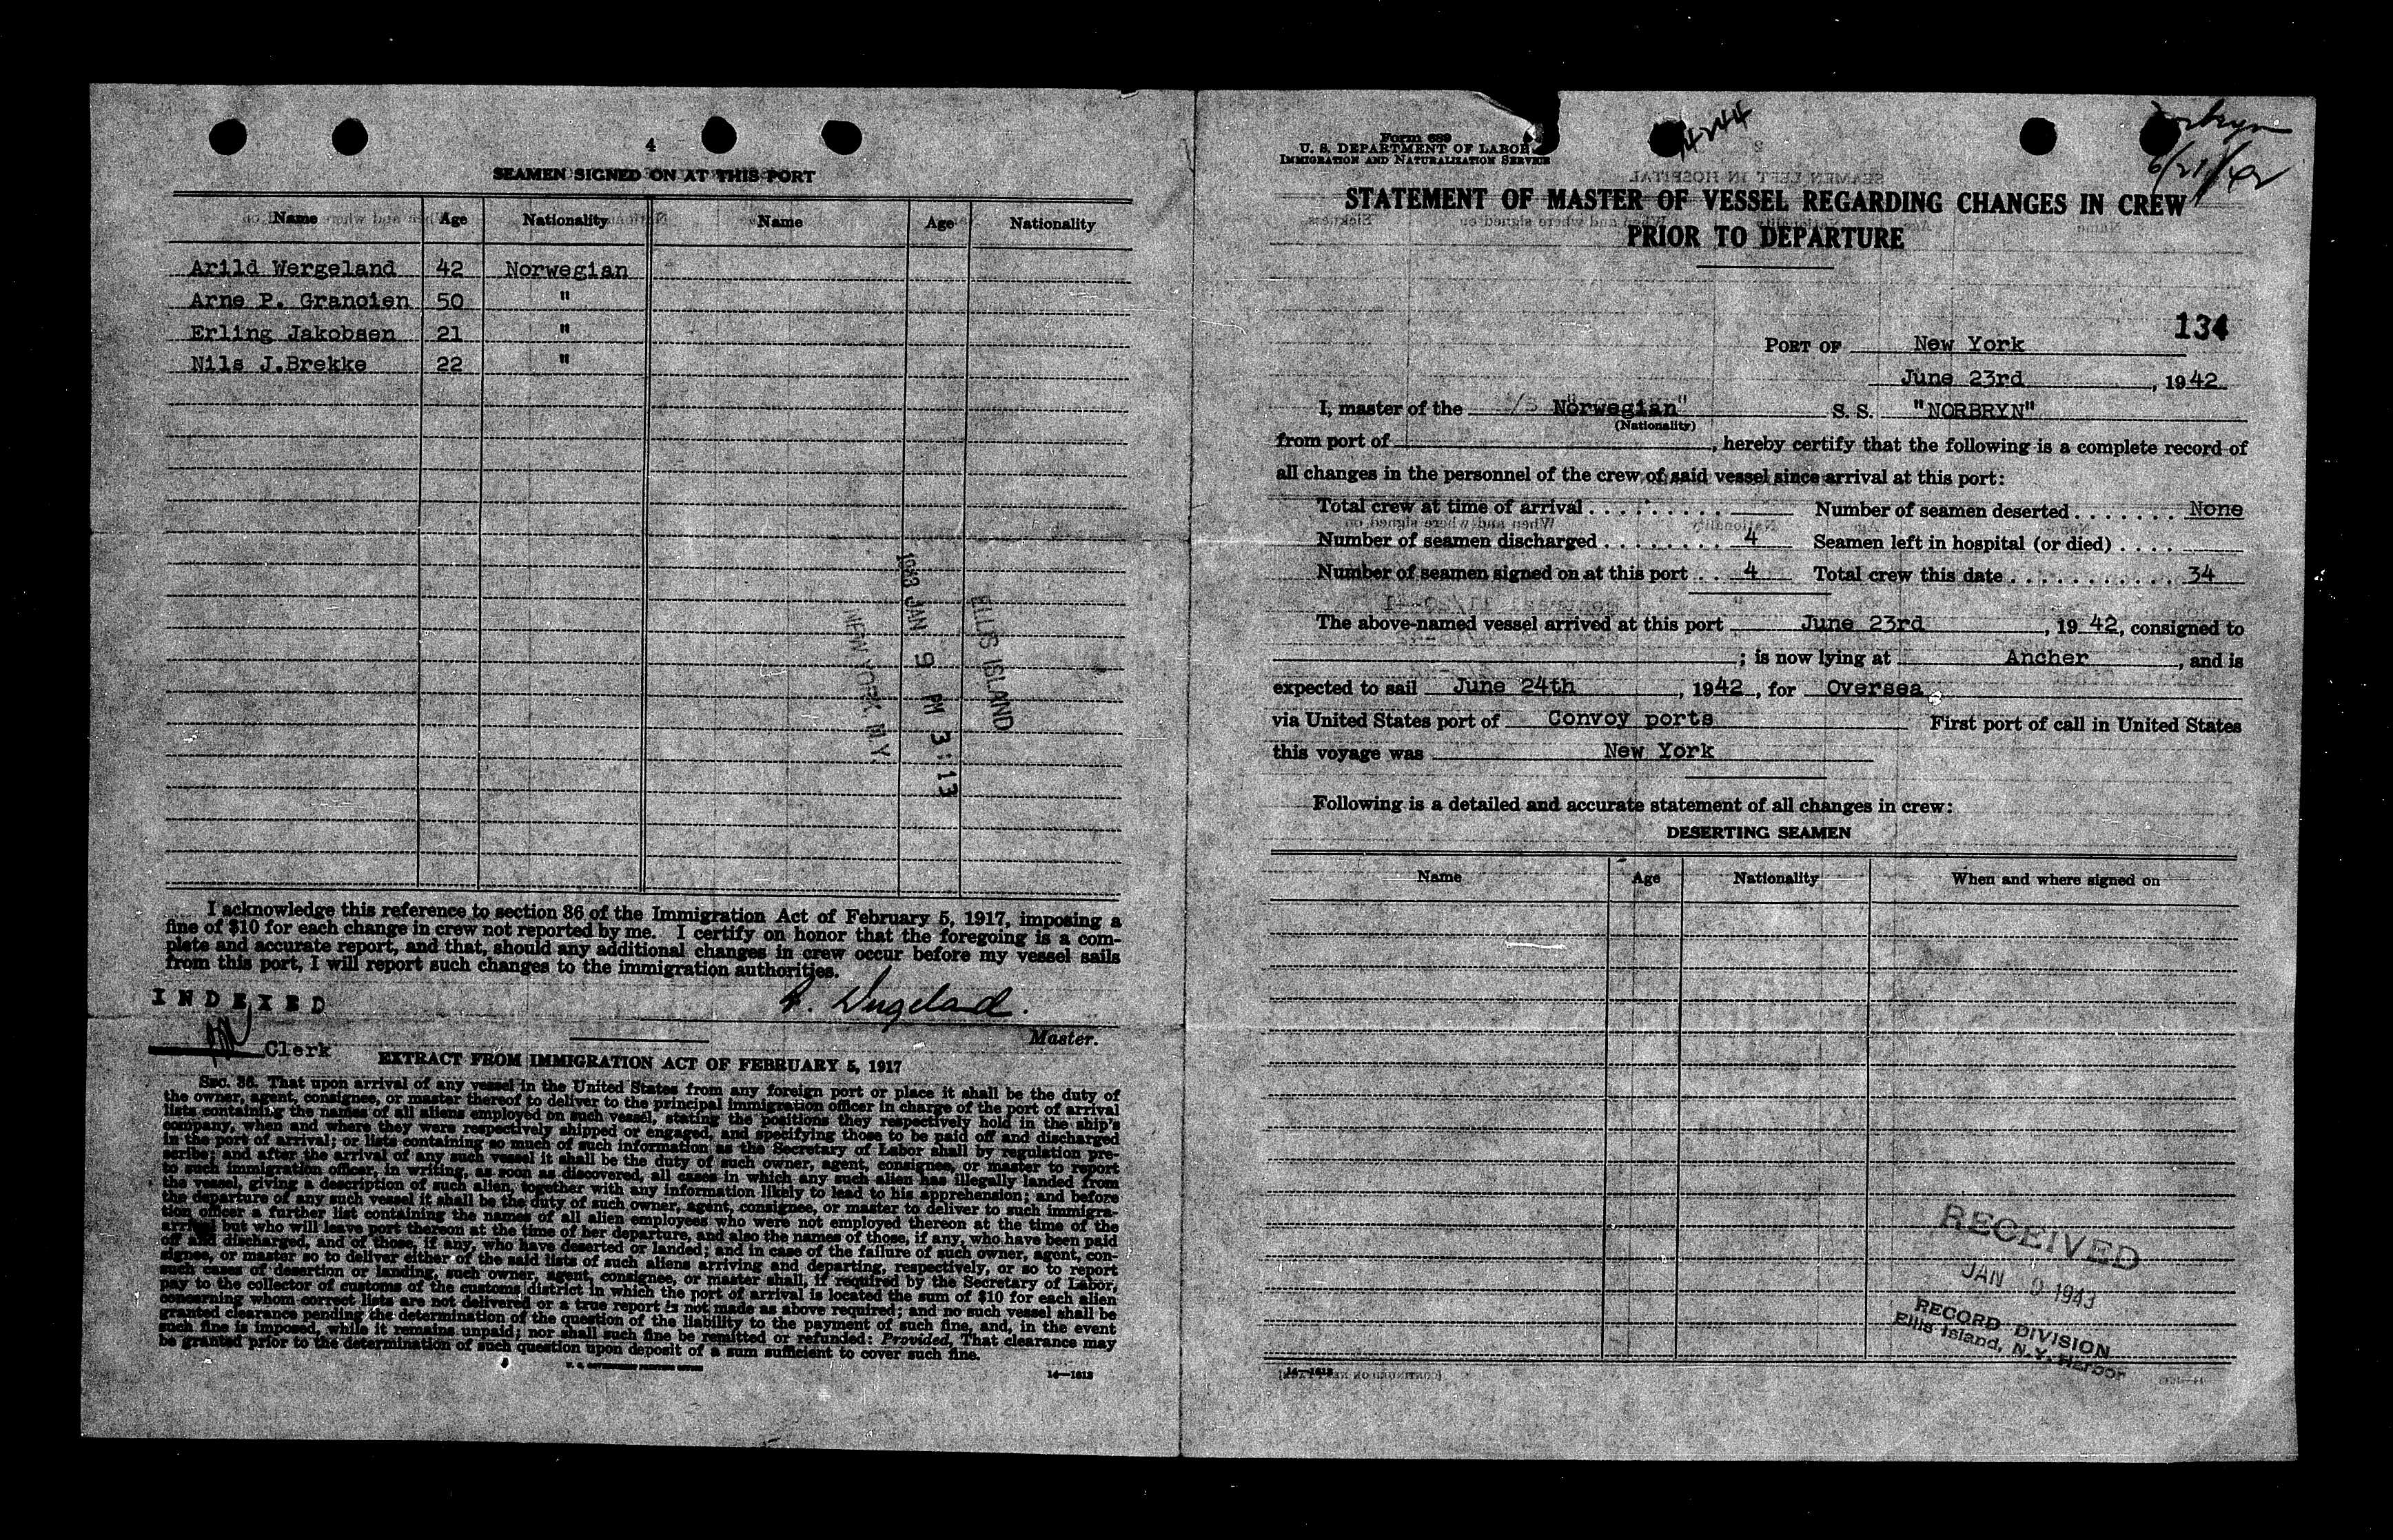 4
SEAMEN SIGNED ON AT THIS PORT
Name Age Nationality Name Age Nationality
Arild Wergeland 42 Norwegian
Arne P. Granoien 50 "
Erling Jakobsen 21 "
Nils J.Brekke 22 "
ELLIS ISLAND
1943 JAN 9 PM 3:13
NEW YORK, N.Y.
I acknowledge this reference to section 36 of the Immigration Act of February 5, 1917, imposing a
fine of $10 for each change in crew not reported by me. I certify on honor that the foregoing is a com-
plete and accurate report, and that, should any additional changes in crew occur before my vessel sails
from this port, I will report such changes to the immigration authorities.
INDEXED
A. Wergeland.
Master.
Clerk
EXTRACT FROM IMMIGRATION ACT OF FEBRUARY 5, 1917
Sec. 36. That upon arrival of any vessel in the United States from any foreign port or place it shall be the duty of
the owner, agent, consignee, or master thereof to deliver to the principal immigration officer in charge of the port of arrival
lists containing the names of all aliens employed on such vessel, stating the positions they respectively hold in the ship's
company, when and where they were respectively shipped or engaged, and specifying those to be paid off and discharged
in the port of arrival; or lists containing so much of such information as the Secretary of Labor shall by regulation pre-
scribe; and after the arrival of any such vessel it shall be the duty of such owner, agent, consignee, or master to report
to such immigration officer, in writing, as soon as discovered, all cases in which any such alien has illegally landed from
the vessel, giving a description of such alien, together with any information likely to lead to his apprehension; and before
the departure of any such vessel it shall be the duty of such owner, agent, consignee, or master to deliver to such immigra-
tion officer a further list containing the names of all alien employees who were not employed thereon at the time of the
arrival but who will leave port thereon at the time of her departure, and also the names of those, if any, who have been paid
off and discharged, and of those, if any, who have deserted or landed; and in case of the failure of such owner, agent, con-
signee, or master so to deliver either of the said lists of such aliens arriving and departing, respectively, or so to report
such cases of desertion or landing, such owner, agent, consignee, or master shall, if required by the Secretary of Labor,
pay to the collector of customs of the customs district in which the port of arrival is located the sum of $10 for each alien
concerning whom correct lists are not delivered or a true report is not made as above required; and no such vessel shall be
granted clearance pending the determination of the question of the liability to the payment of such fine, and, in the event
such fine is imposed, while it remains unpaid; nor shall such fine be remitted or refunded: Provided, That clearance may
be granted prior to the determination of such question upon deposit of a sum sufficient to cover such fine.
U. S. GOVERNMENT PRINTING OFFICE
14—1613
Form 689
U. S. DEPARTMENT OF LABOR
IMMIGRATION AND NATURALIZATION SERVICE
14244
Norbryn
6/21/42
STATEMENT OF MASTER OF VESSEL REGARDING CHANGES IN CREW
PRIOR TO DEPARTURE
134
PORT OF New York
June 23rd, 1942
I, master of the Norwegian S. S. "NORBRYN"
(Nationality)
from port of , hereby certify that the following is a complete record of
all changes in the personnel of the crew of said vessel since arrival at this port:
Total crew at time of arrival . . . . . . . . . Number of seamen deserted . . . . . . . None
Number of seamen discharged . . . . . . . . 4 Seamen left in hospital (or died) . . . .
Number of seamen signed on at this port . . 4 Total crew this date . . . . . . . . . . . 34
The above-named vessel arrived at this port June 23rd, 19 42, consigned to
; is now lying at Ancher, and is
expected to sail June 24th, 1942, for Oversea
via United States port of Convoy ports First port of call in United States
this voyage was New York
Following is a detailed and accurate statement of all changes in crew:
DESERTING SEAMEN
Name Age Nationality When and where signed on
RECEIVED
JAN 9 1943
RECORD DIVISION
Ellis Island, N.Y. Harbor
14—1613